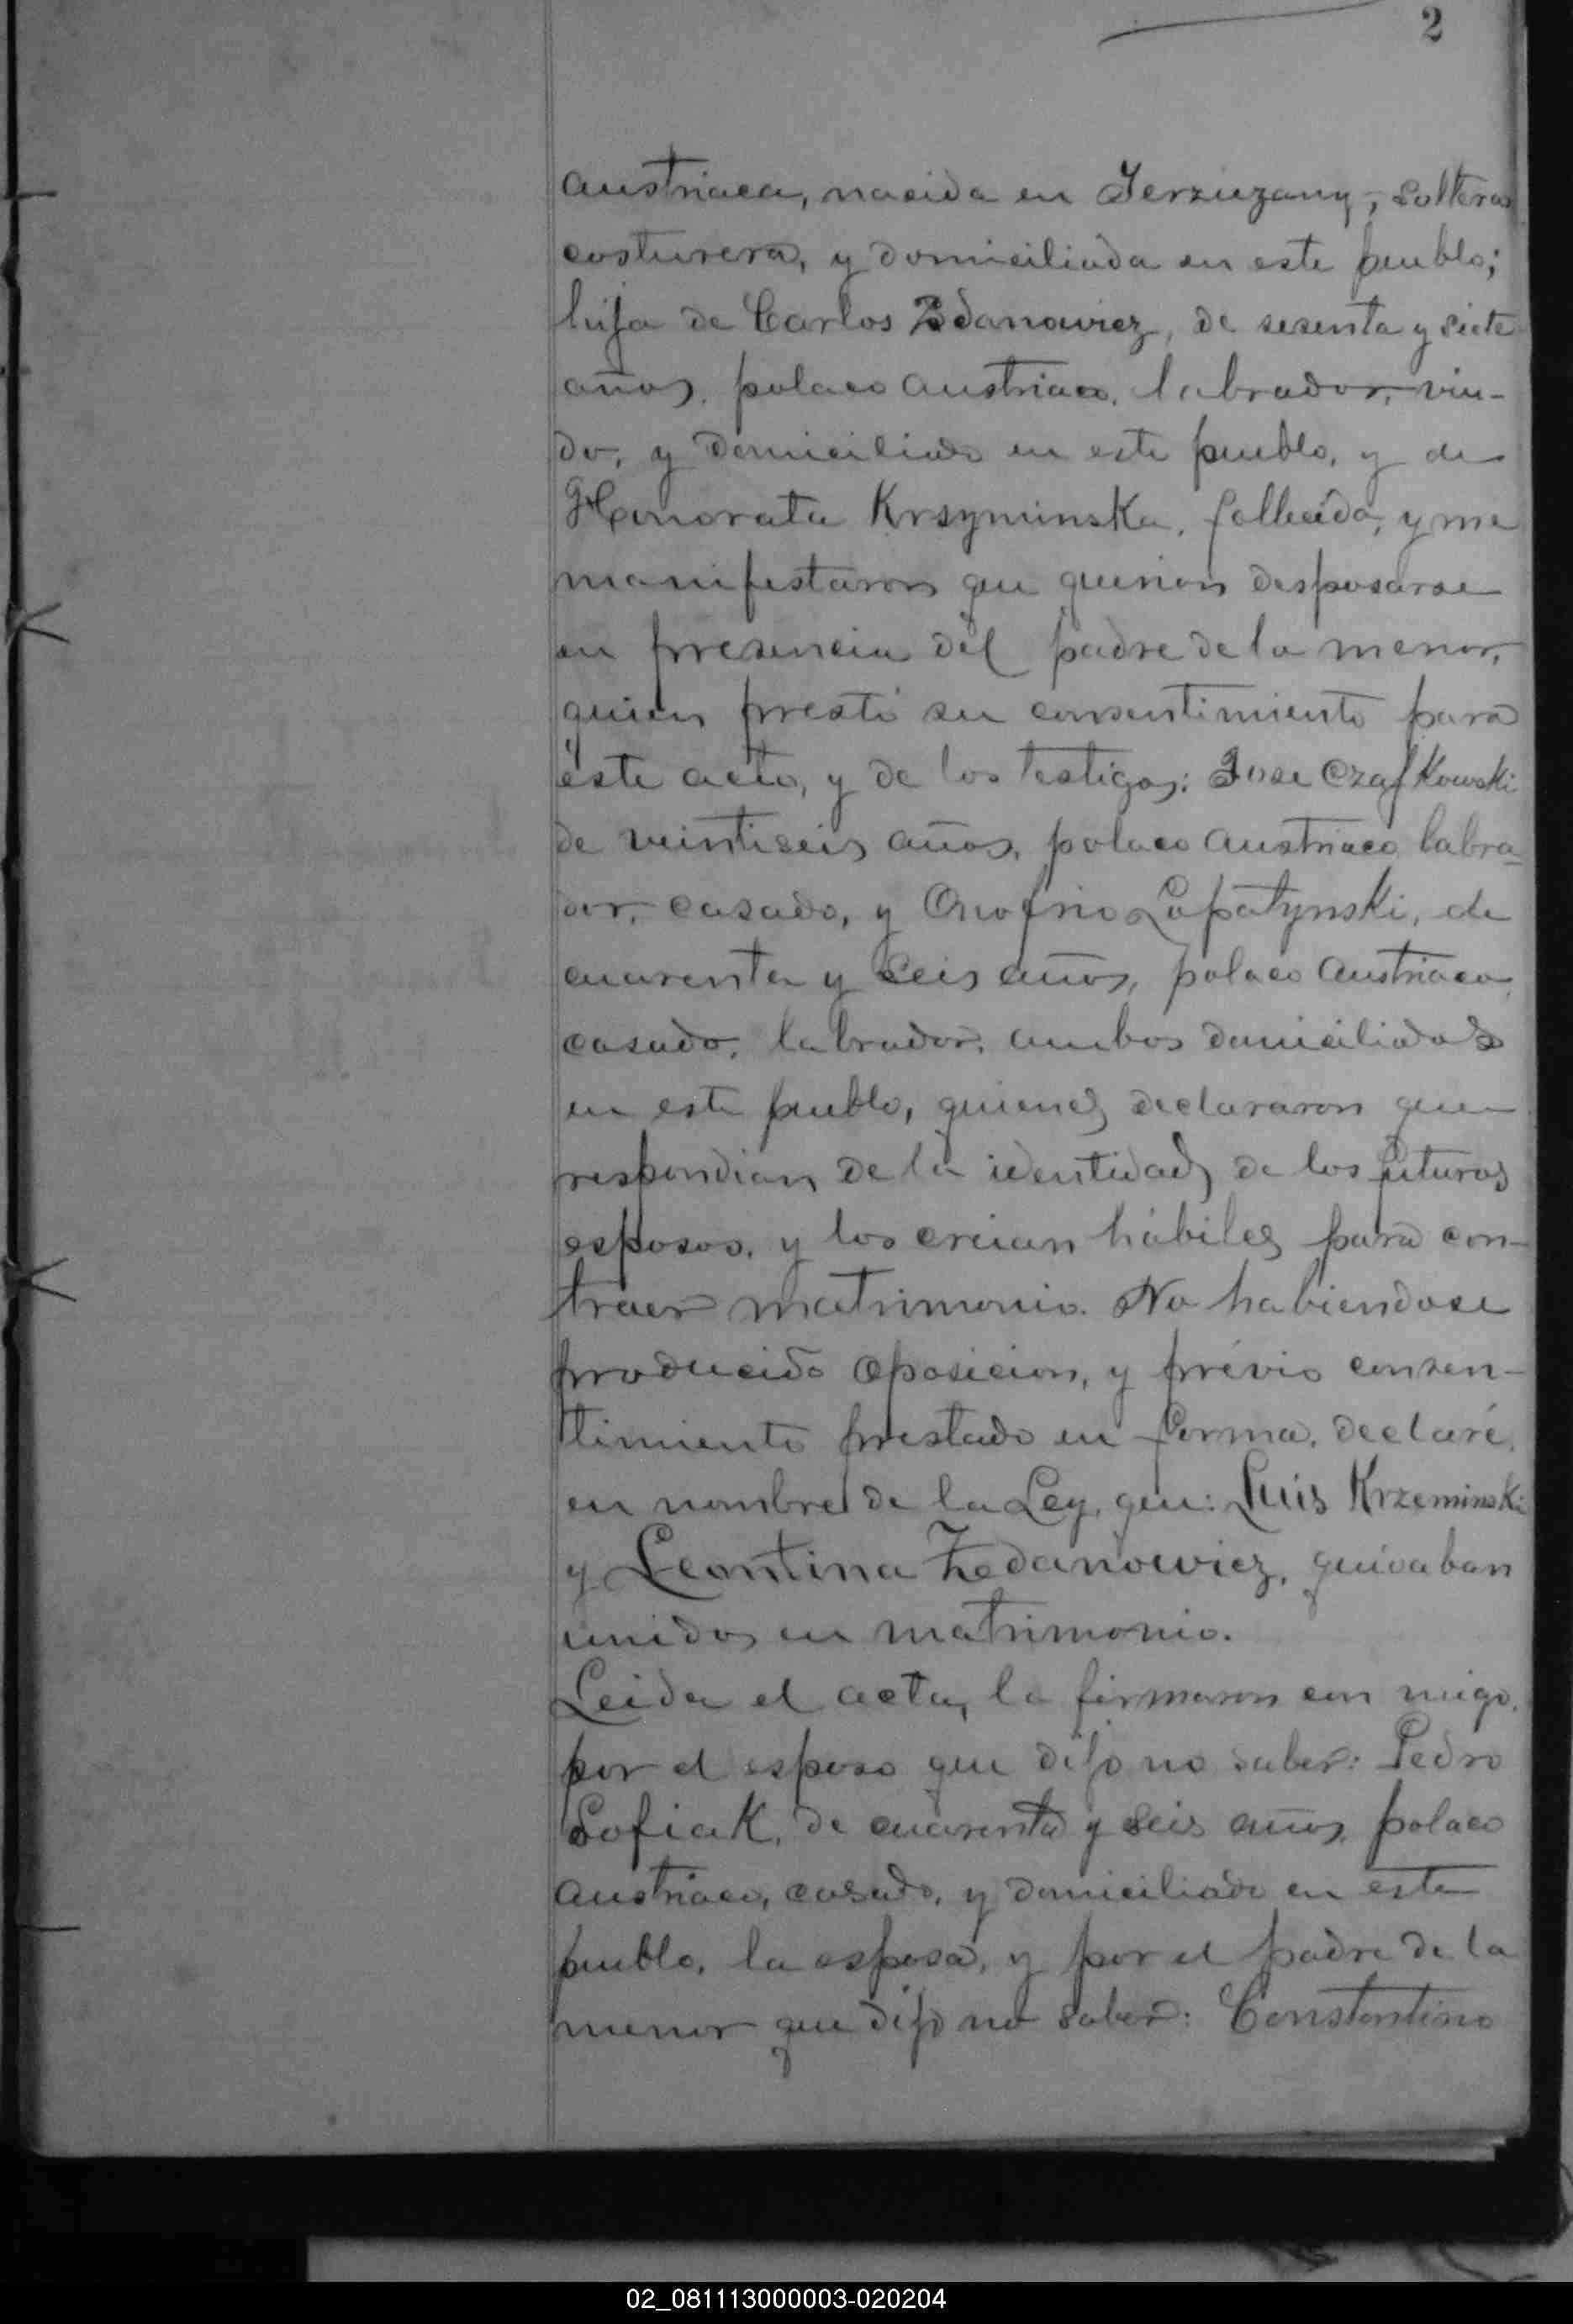 2
austriaca, nacida en Jerziezany, soltera
costurera, y domiciliada en este pueblo;
hija de Carlos Zdanowiez, de sesenta y siete
años, polaco austriaco, labrador, viu-
do, y domiciliado en este pueblo, y de
Honorata Krsyminska, fallecida, y me
manifestaron que querian desposarse
en presencia del padre de la menor,
quien prestó su consentimiento para
éste acto, y de los testigos: Jose Czajkowski
de veintiseis años, polaco austriaco labra-
dor, casado, y Onofrio Lopatynski, de
cuarenta y seis años, polaco austriaco,
casado, labrador, ambos domiciliados
en este pueblo, quienes declararon que
respondian de la identidad de los futuros
esposos, y los creian hábiles para con-
traer matrimonio. No habiendose
producido oposicion, y prévio consen-
timiento prestado en forma, declaré,
en nombre de la Ley, que: Luis Krzeminski
y Leontina Zedanowiez, quedaban
unidos en matrimonio.
Leida el acta, la firmaron con migo,
por el esposo que dijo no saber: Pedro
Sofiak, de cuarenta y seis años, polaco
austriaco, casado, y domiciliado en este
pueblo, la esposa, y por el padre de la
menor que dijo no saber: Constantino
02_081113000003-020204